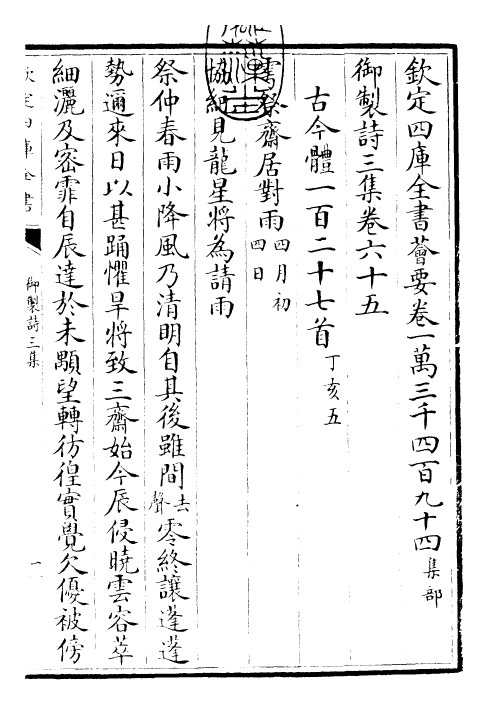 欽定四庫全書薈要卷一萬三千四百九十四 集部
御製詩三集卷六十五
古今體一百二十七首 丁亥五
雩祭齋居對雨 四月初四日
協紀見龍星將為請雨
祭仲春雨小降風乃清明自其後雖間去聲零終讓蓬蓬
勢邇來日以甚踊懼旱將致三齋始今辰侵曉雲容萃
細灑及密霏自辰達於未顒望轉彷徨實覺欠優被傍
欽定四庫全書
御製詩三集
一